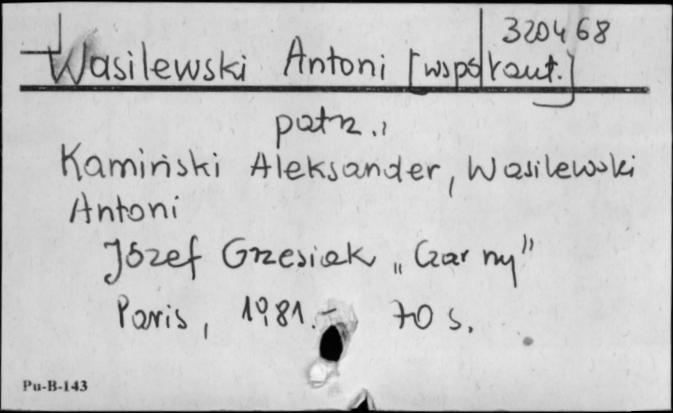 320468
Wasilewski Antoni [współaut.]
patrz:
Kamiński Aleksander, Wasilewski
Antoni
Józef Grzesiak „Czarny”
Paris, 1981.- 70 s.
Pu-B-143